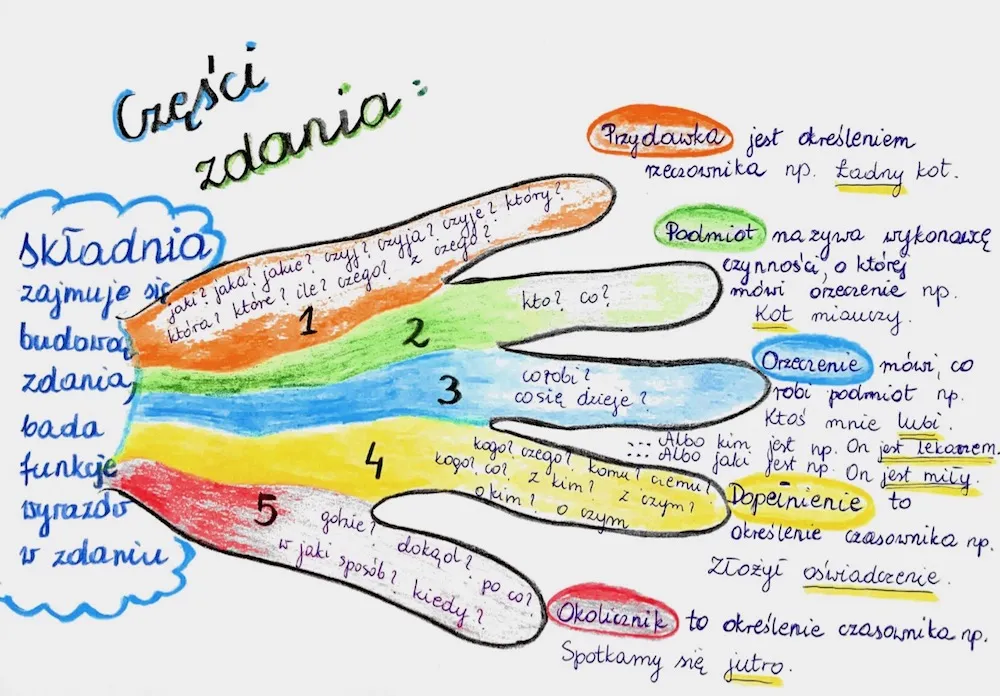 Części
zdania:
Składnia
zajmuje się
budową
zdania,
bada
funkcje
wyrazów
w zdaniu
jaki? jaka? jakie? czyj? czyja? czyje? który?
która? które? ile? czego? z czego?
1
2
kto? co?
3
co robi?
co się dzieje?
4
kogo? czego? komu? czemu?
kogo? co? z kim? z czym?
o kim? o czym
5
gdzie? dokąd? po co?
w jaki sposób? kiedy?
Przydawka jest określeniem
rzeczownika np. Ładny kot.
Podmiot nazywa wykonawcę
czynności, o której
mówi orzeczenie np.
Kot miauczy.
Orzeczenie mówi, co
robi podmiot np.
Ktoś mnie lubi.
... Albo kim jest np. On jest lekarzem.
... Albo jaki jest np. On jest miły.
Dopełnienie to
określenie czasownika np.
Złożył oświadczenie.
Okolicznik to określenie czasownika np.
Spotkamy się jutro.